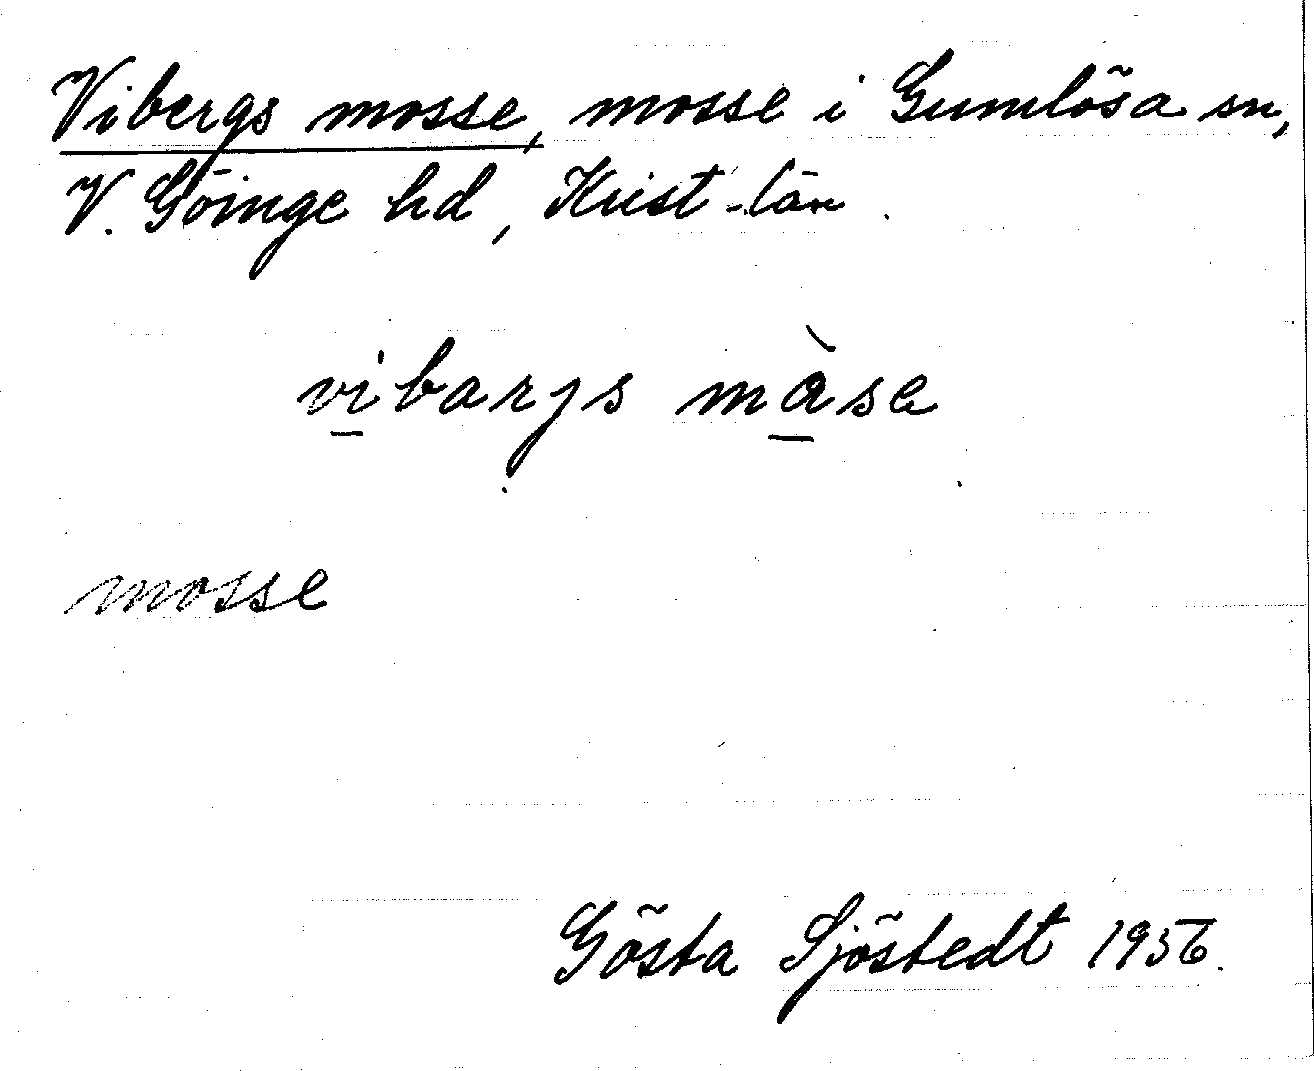 Vibergs mosse, mosse i Gumlösa sn,
V. Göinge hd, Krist-län.
vibarjs måse
mosse
Gösta Sjöstedt 1956.